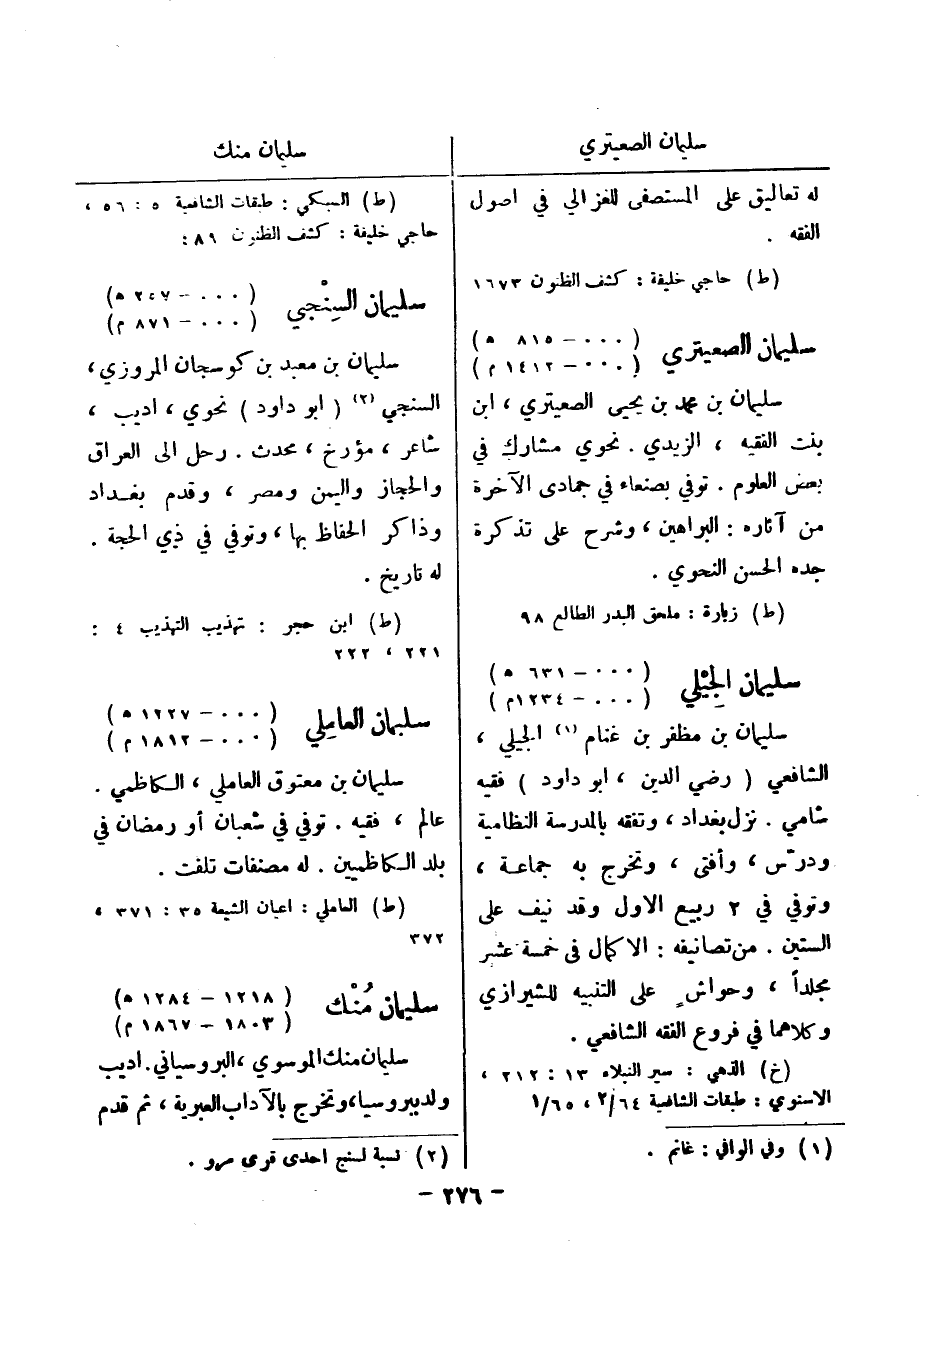 سليمان الصعيتري
سليمان منك
له تعاليق على المستصفى للغزالي في اصول
الفقه .
(ط) حاجي خليفة : كشف الظنون ١٦٧٣
سليمان الصعيتري
( ٠٠٠ – ٨١٥ ه )
( ٠٠٠ – ١٤١٢ م )
سليمان بن محمد بن يحيى الصعيتري ، ابن
بنت الفقيه ، الزيدي . نحوي مشارك في
بعض العلوم . توفي بصنعاء في جمادى الآخرة
من آثاره : البراهين ، وشرح على تذكرة
جده الحسن النحوي .
(ط) زبارة : ملحق البدر الطالع ٩٨
سليمان الجِيْلي
( ٠٠٠ – ٦٣١ ه )
( ٠٠٠ – ١٢٣٤م )
سليمان بن مظفر بن غنام (١) الجيلي ،
الشافعي ( رضي الدين ، ابو داود ) فقيه
شامي . نزل بغداد ، وتفقه بالمدرسة النظامية
ودرّس ، وأفتى ، وتخرج به جماعة ،
وتوفي في ٢ ربيع الاول وقد نيف على
الستين . من تصانيفه : الاكمال في خمسة عشر
مجلداً ، وحواشٍ على التنبيه للشيرازي
وكلاهما في فروع الفقه الشافعي .
(خ) الذهبي : سير النبلاء ١٣ : ٢١٢ ،
الاسنوي : طبقات الشافعية ٢/٦٤ ، ١/٦٥
(١) وفي الوافي : غانم .
(ط) السبكي : طبقات الشافعية ٥ : ٥٦ ،
حاجي خليفة : كشف الظنون ٨٩ :
سليمان السِنْجي
( ٠٠٠ – ٢٥٧ ه )
( ٠٠٠ – ٨٧١ م )
سليمان بن معبد بن كوسجان المروزي ،
السنجي (٢) ( ابو داود ) نحوي ، اديب ،
شاعر ، مؤرخ ، محدث . رحل الى العراق
والحجاز واليمن ومصر ، وقدم بغداد
وذاكر الحفاظ بها ، وتوفي في ذي الحجة .
له تاريخ .
(ط) ابن حجر : تهذيب التهذيب ٤ :
٢٢١ ، ٢٢٢
سليمان العاملي
( ٠٠٠ – ١٢٢٧ ه )
( ٠٠٠ – ١٨١٢ م )
سليمان بن معتوق العاملي ، الكاظمي .
عالم ، فقيه . توفي في شعبان أو رمضان في
بلد الكاظميين . له مصنفات تلفت .
(ط) العاملي : اعيان الشيعة ٣٥ : ٣٧١ ،
٣٧٢
سليمان مُنْك
( ١٢١٨ – ١٢٨٤ ه )
( ١٨٠٣ – ١٨٦٧ م )
سليمان منك الموسوي ، البروسياني . اديب
ولد ببروسيا ، وتخرج بالآداب العبرية ، ثم قدم
(٢) نسبة لسنج احدى قرى مرو .
– ٢٧٦ –